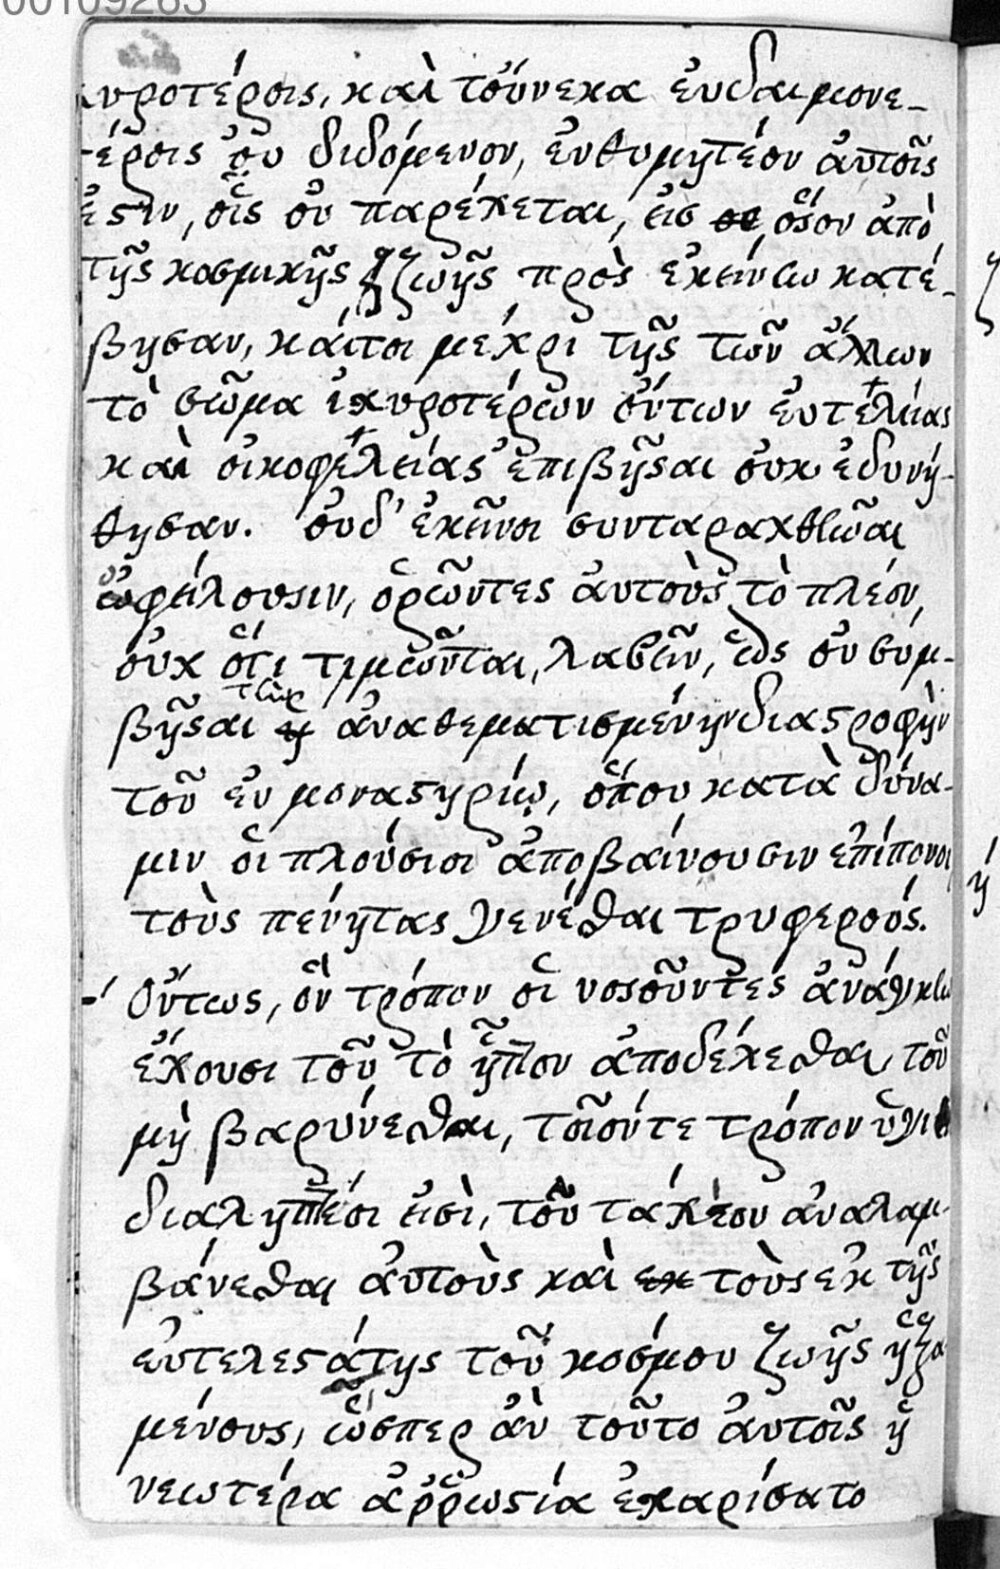 00109283
χυροτέροις, καὶ τούνεκα ἐυδαιμονε-
τέροις οὐ διδόμενον, ἐνθυμητέον ἀυτοῖς
ἐςὶν, οἷς οὐ παρέχεται, εἰς ὅσον ἀπὸ
τῆς κοσμικῆς ζωῆς πρὸς ἐκείνην κατέ-
βησαν, κάιτοι μέχρι τῆς τῶν ἄλλων
τὸ σῶμα ἰχυροτέρων ὄντων ἐυτελείας
καὶ οἰκοφελείας ἐπιβῆσαι οὐκ ἐδυνή-
θησαν. ὀυδ' ἐκεῖνοι συνταραχθῆναι
ὀφείλουσιν, ὁρῶντες ἀυτοὺς τὸ πλέον,
οὐχ ὅτι τιμῶνται, λαβεῖν, ὡς οὐ συμ-
βῆσαι τὴν ἀναθεματισμένην διαςροφὴν
τοῦ ἐν μοναςηρίῳ, ὅπου κατὰ δύνα-
μιν οἱ πλούσιοι ἀποβαίνουσιν ἐπίπονοι
τοὺς πένητας γενέσθαι τρυφερούς.
Οὕτως, ὃν τρόπον οἱ νοσοῦντες ἀνάγκην
ἔχουσι τοῦ τὸ ἧττον ἀποδέχεσθαι, τοῦ
μὴ βαρύνεσθαι, τοιούτε τρόπον
διαληπτέοι εἰσὶ, τοῦ τάχιον ἀναλαμ-
βάνεσθαι ἀυτοὺς καὶ τοὺς ἐκ τῆς
ἐυτελεςάτης τοῦ κόσμου ζωῆς
μένους, ὥσπερ ἂν τοῦτο ἀυτοῖς ἡ
νεωτέρα ἀῤῥωςία ἐχαρίσατο